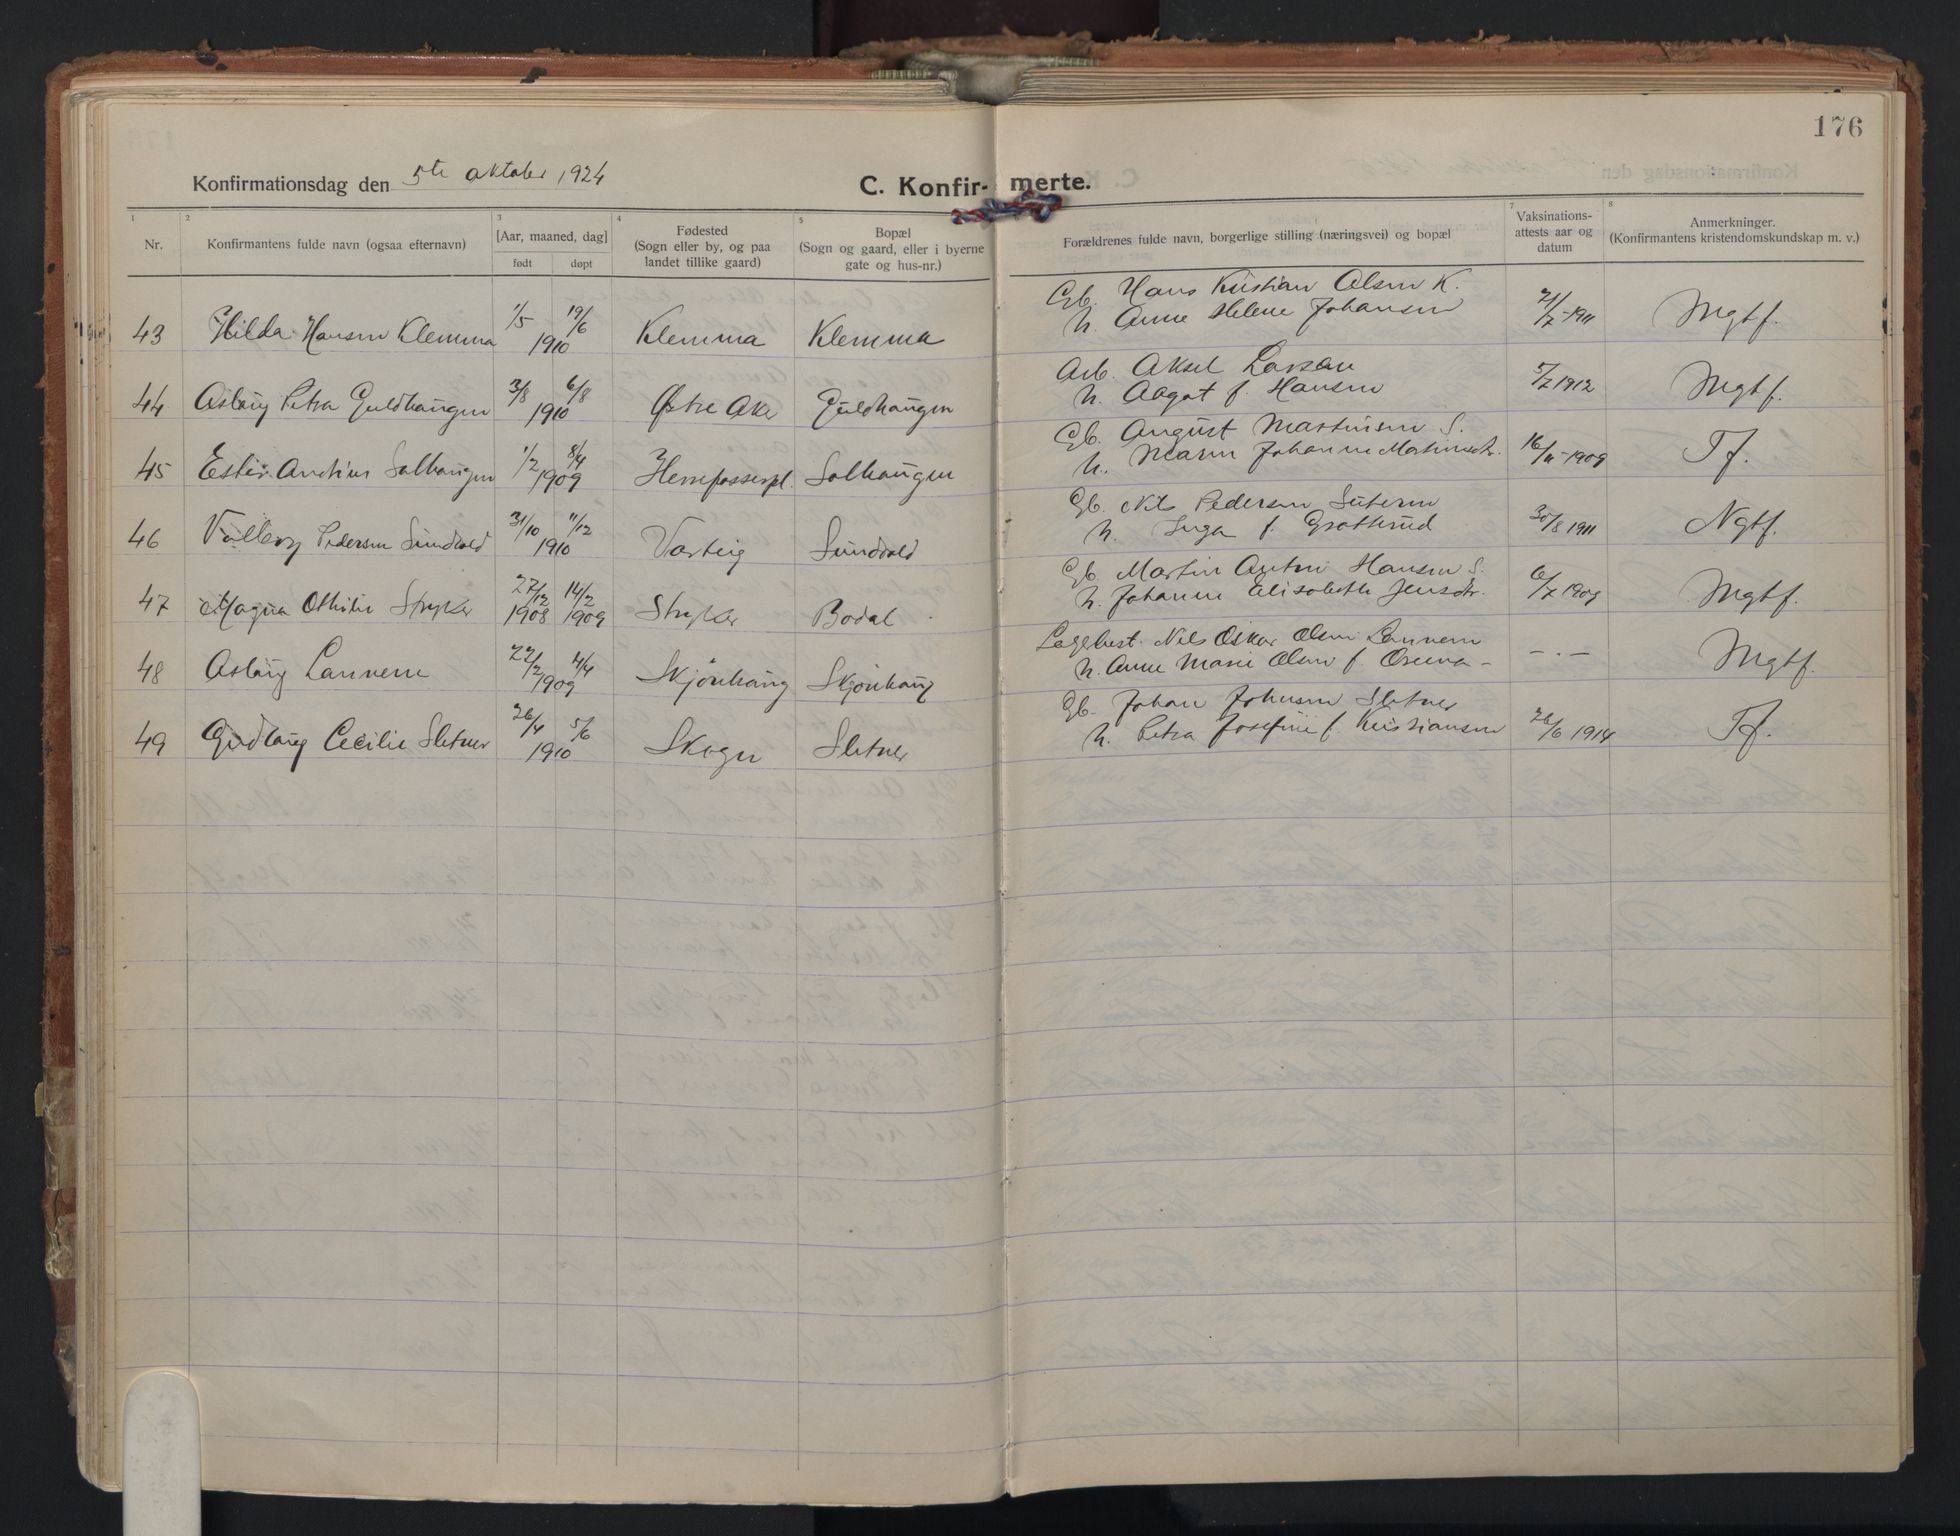 176
Konfirmationsdag den 5te oktober 1924
C. Konfir- merte.
1 2 3 4 5 7 8
Nr.
Konfirmantens fulde navn (ogsaa efternavn)
[Aar, maaned, dag]
født døpt
Fødested
(Sogn eller by, og paa
landet tillike gaard)
Bopæl
(Sogn og gaard, eller i byerne
gate og hus-nr.)
Forældrenes fulde navn, borgerlige stilling (næringsvei) og bopæl
Vaksinations-
attests aar og
datum
Anmerkninger.
(Konfirmantens kristendomskundskap m. v.)
43 Hilda Hansen Klemma 1/5 19/6 1910 Klemma Klemma
Gb. Hans Kristian Olsen K.
h. Anne Helene Johansen
21/7-1911 Mgtf.
44 Asbürg Petra Guldhaugen 3/8 6/8 1910 Østre Aker Guldhaugen
Arb. Aksel Larsen
h. Aagot f. Hansen
5/7 1912 Mgtf.
45 Ester Solhaugen 1/2 8/4 1909 Solhaugen
Gb. August Martinsen S.
h. Maren Johanne Martinsdtr.
16/11-1909 Tf.
46 Valborg Pedersen Sundvold 31/10 11/12 1910 Varteig Sundvold
Gb. Nils Pedersen
h. Inga f. Grøtterud
30/8 1911 Ngtf.
47 Magna Othilie Stryker 27/12 1908 14/2 1909 Stryker Bodal
Gb. Martin Anton Hansen S.
h. Johanne Elisabeth Jensdtr.
6/7 1909 Mgtf.
48 Asbürg Lannem 22/2 4/4 1909 Skjönhaug Skjönhaug
Nils Oskar Olsen Lannem
h. Anne Marie Olsen f.
- . - Mgtf.
49 Gudbürg Cecilie Sletner 26/4 5/6 1910 Skogen Sletner
Gb. Johan Johnsen Sletner
h. Petra Josefine f. Kristiansen
26/6 1914 Tf.